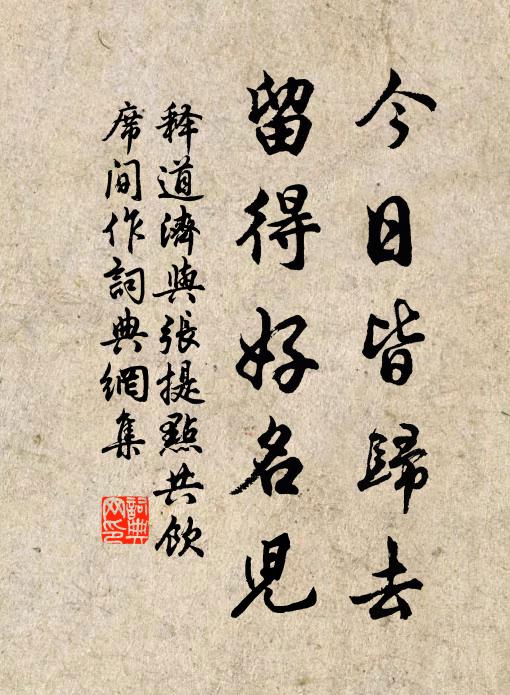 今日皆歸去
留得好名兒
释道濟與張提點共飲
席间作詞典網集
詞典网印